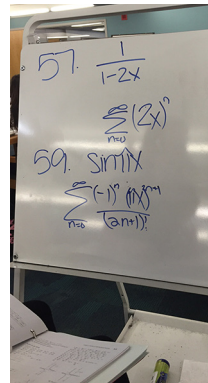 57. 1/(1-2x)
∞ Σ n=0 (2x)^n
59. sin πx
∞ Σ n=0 (-1)^n (πx)^2n+1 / (2n+1)!